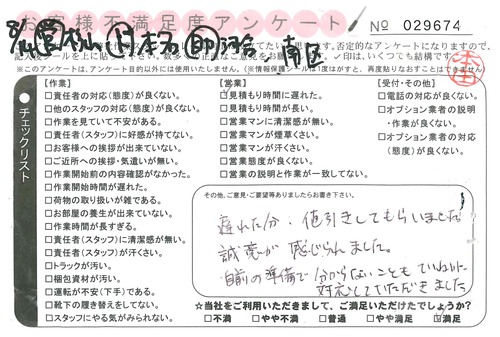 お客様不満足度アンケート No 029674
南区
※このアンケートは、アンケート目的以外には使用いたしません。(※情報保護シールは1度はがすと、再度貼りなおすことはできません)
チェックリスト
【作業】
□責任者の対応(態度)が良くない。
□他のスタッフの対応(態度)が良くない。
□作業を見ていて不安がある。
□責任者(スタッフ)に好感が持てない。
□お客様への挨拶が出来ていない。
□ご近所への挨拶・気遣いが無い。
□作業開始前の内容確認がなかった。
□作業開始時間が遅れた。
□荷物の取り扱いが雑である。
□お部屋の養生が出来ていない。
□作業時間が長すぎる。
□責任者(スタッフ)に清潔感が無い。
□責任者(スタッフ)が汗くさい。
□トラックが汚い。
□梱包資材が汚い。
□運転が不安(下手)である。
□靴下の履き替えをしてない。
□スタッフにやる気がみられない。
【営業】
□見積もり時間に遅れた。
□見積もり時間が長い。
□営業マンに清潔感が無い。
□営業マンが煙草くさい。
□営業マンが汗くさい。
□営業態度が良くない。
□営業の説明と作業が一致してない。
【受付・その他】
□電話の対応が良くない。
□オプション業者の説明・作業が良くない。
□オプション業者の対応(態度)が良くない。
その他、ご意見・ご要望等ありましたらお書き下さい。
遅れた分、値引きしてもらいました。
誠意が感じられました。
自前の準備で分からないことも ていねいに
対応していただきました
☆当社をご利用いただきまして、ご満足いただけたでしょうか?
□不満 □やや不満 □普通 □やや満足 □満足